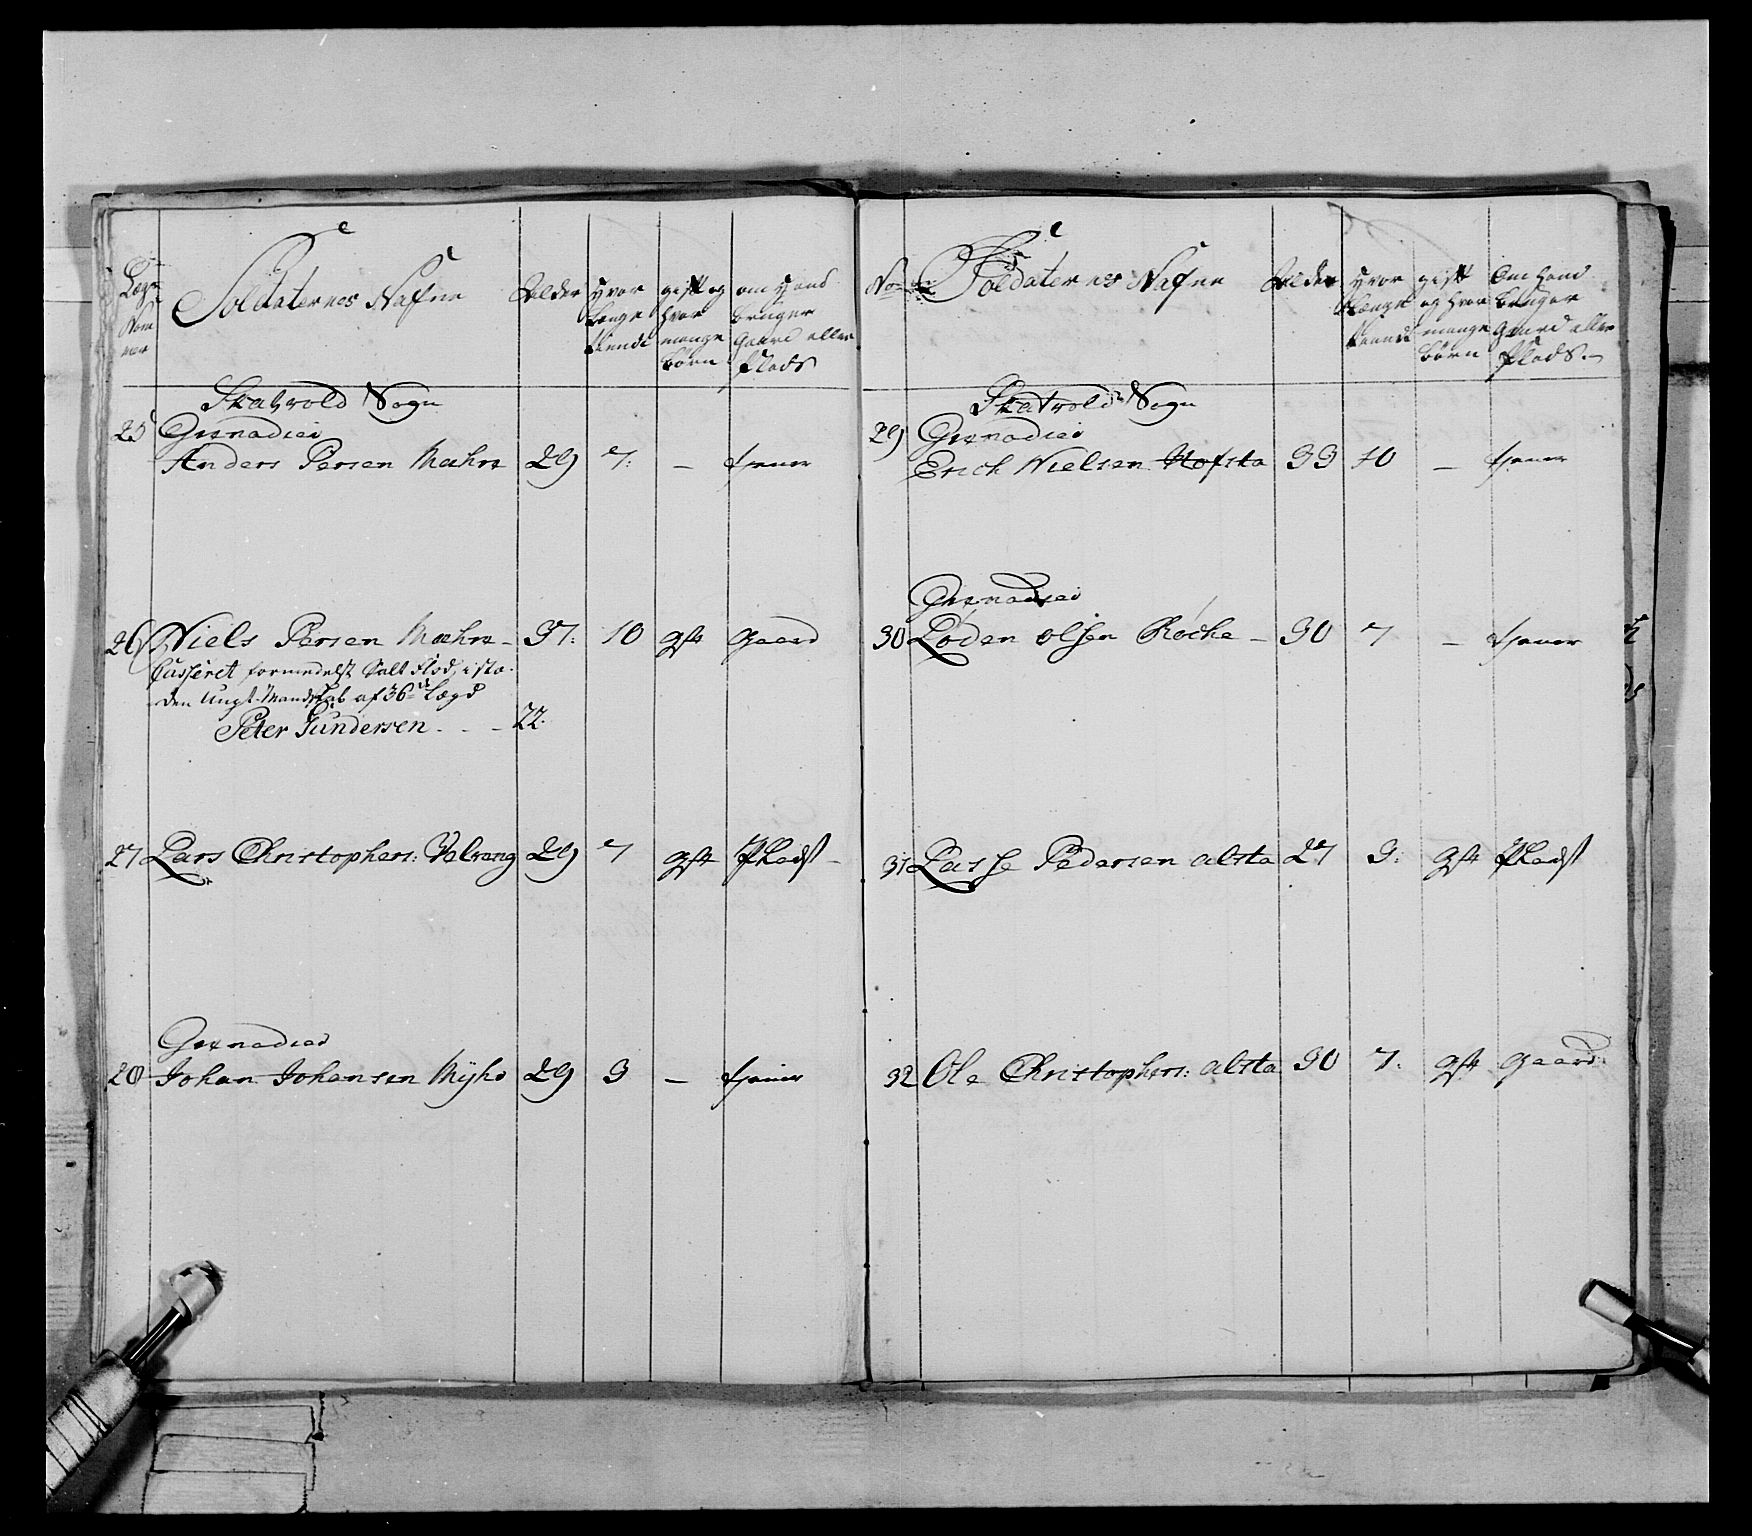 Lægs
Num
mer
Soldaternes Nafne
Alder
hvor
længe
tient
gift og
hvor
mange
børn
om hand
bruger
gaard eller
Plads
Skatvold Sogn
25 Grenadier
Anders Persen Mæhre 29 7: — tjener
26 Niels Persen Mæhre — 37: 10 gift gaard
Casseret formedelst Salt Flod, i sta-
den ungt Mandskab af 36de Lægd
Peter Gundersen . . - 22.
27 Lars Christophers: Velvang 29 7 gift Pladst —
Grenadier
28 Johan Johansen Myhr 29 9 — tjener
No
Soldaternes Nafne
Alder
hvor
længe
tient
gift
og hvor
mange
børn
Om hand
bruger
gaard eller
Plads. —
Skatvold Sogn
29 Grenadier
Erich Nielsen Hofsta 33 10 — tjener
Grenadier
30 Loden olsen Røcke — 30 7 — tjener
31 Lasse Pedersen alsta 27 9: gift Pladst
32 Ole Christophers: alsta 30 7. gift gaard: